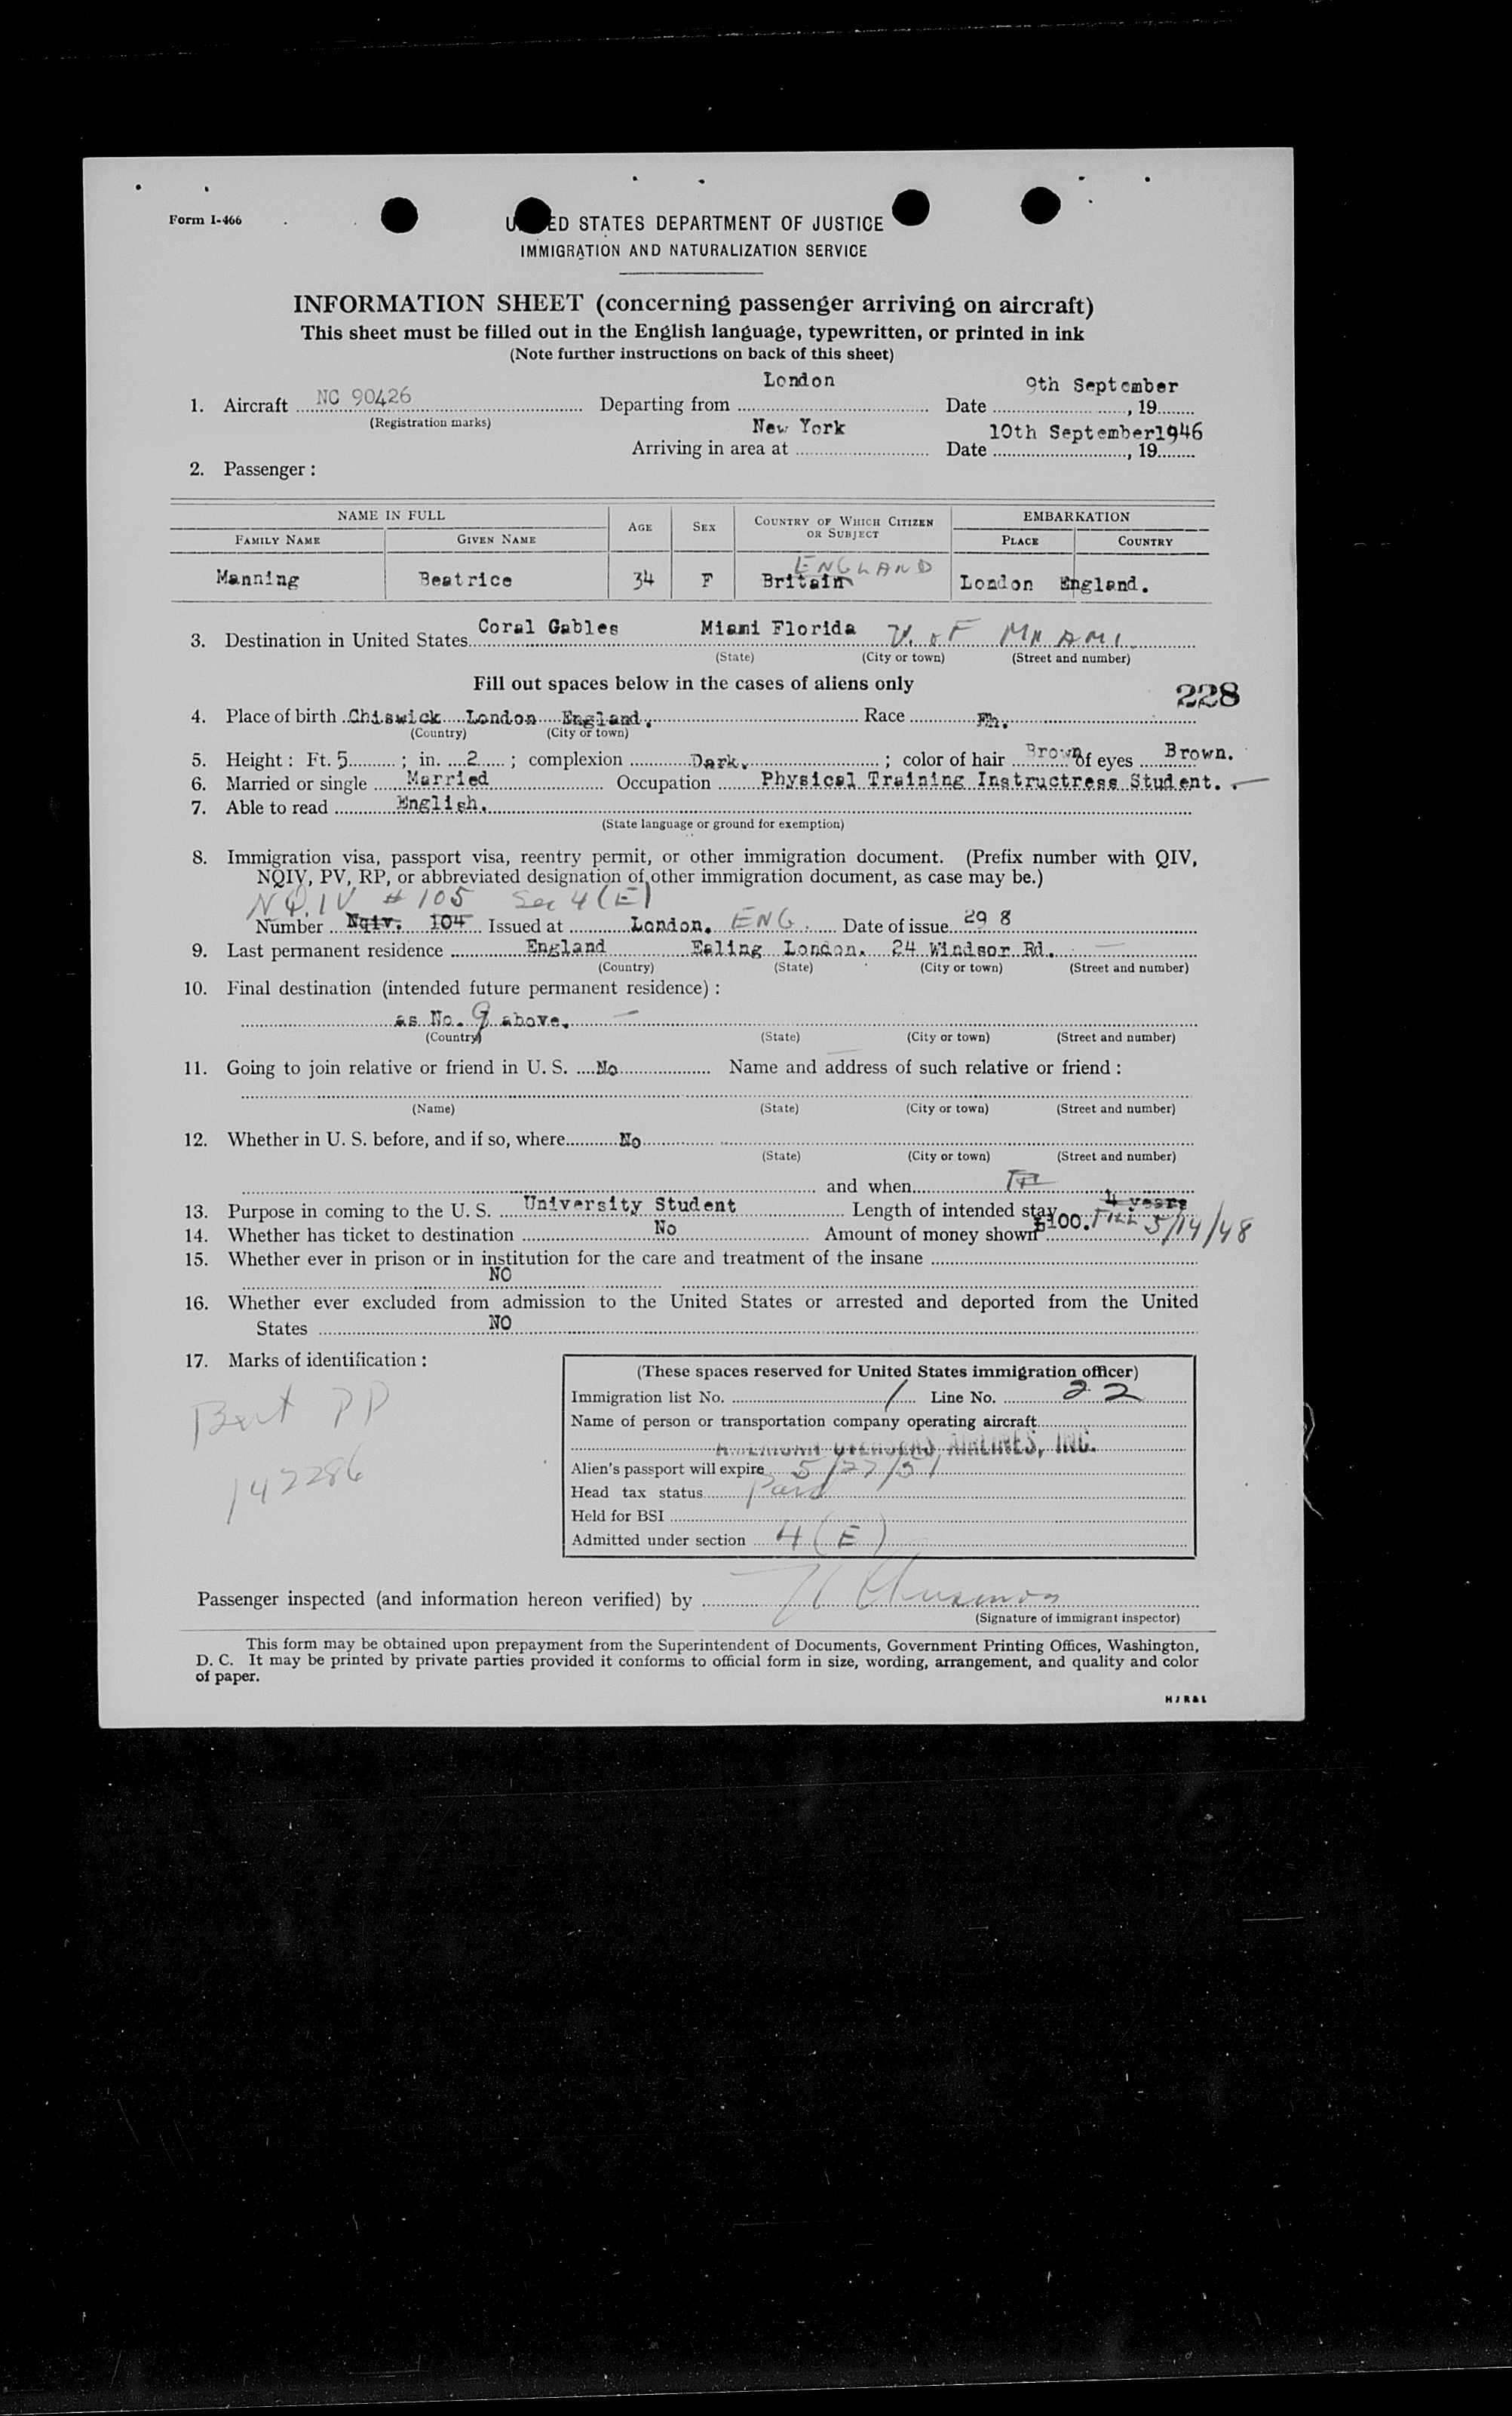 Form I-466
UNITED STATES DEPARTMENT OF JUSTICE
IMMIGRATION AND NATURALIZATION SERVICE
INFORMATION SHEET (concerning passenger arriving on aircraft)
This sheet must be filled out in the English language, typewritten, or printed in ink
(Note further instructions on back of this sheet)
1. Aircraft NC 90426 Departing from London Date 9th September, 19
(Registration marks)
Arriving in area at New York Date 10th September 1946, 19
2. Passenger:
NAME IN FULL AGE SEX COUNTRY OF WHICH CITIZEN OR SUBJECT EMBARKATION
FAMILY NAME GIVEN NAME PLACE COUNTRY
ENGLAND
Manning Beatrice 34 F Britain London England.
3. Destination in United States Coral Gables Miami Florida U. of MIAMI
(State) (City or town) (Street and number)
Fill out spaces below in the cases of aliens only
228
4. Place of birth Chiswick London England. Race Eh.
(Country) (City or town)
5. Height: Ft. 5; in. 2; complexion Dark.; color of hair Brown of eyes Brown.
6. Married or single Married Occupation Physical Training Instructress Student.
7. Able to read English.
(State language or ground for exemption)
8. Immigration visa, passport visa, reentry permit, or other immigration document. (Prefix number with QIV,
NQIV, PV, RP, or abbreviated designation of other immigration document, as case may be.)
NQIV # 105 Sec 4 (E)
Number Nqiv. 104 Issued at London. ENG. Date of issue 29 8
9. Last permanent residence England Ealing London. 24 Windsor Rd.
(Country) (State) (City or town) (Street and number)
10. Final destination (intended future permanent residence):
as No. 9 above.
(Country) (State) (City or town) (Street and number)
11. Going to join relative or friend in U. S. No Name and address of such relative or friend:
(Name) (State) (City or town) (Street and number)
12. Whether in U. S. before, and if so, where No
(State) (City or town) (Street and number)
and when
13. Purpose in coming to the U. S. University Student Length of intended stay 4 years Till 5/14/48
14. Whether has ticket to destination No Amount of money shown £100.
15. Whether ever in prison or in institution for the care and treatment of the insane
NO
16. Whether ever excluded from admission to the United States or arrested and deported from the United
States NO
17. Marks of identification:
PP
142286
(These spaces reserved for United States immigration officer)
Immigration list No. 1 Line No. 22
Name of person or transportation company operating aircraft
AMERICAN OVERSEAS AIRLINES, INC.
Alien's passport will expire 5/27/51
Head tax status Paid
Held for BSI
Admitted under section 4 (E)
Passenger inspected (and information hereon verified) by
(Signature of immigrant inspector)
This form may be obtained upon prepayment from the Superintendent of Documents, Government Printing Offices, Washington,
D. C. It may be printed by private parties provided it conforms to official form in size, wording, arrangement, and quality and color
of paper.
HJR&L